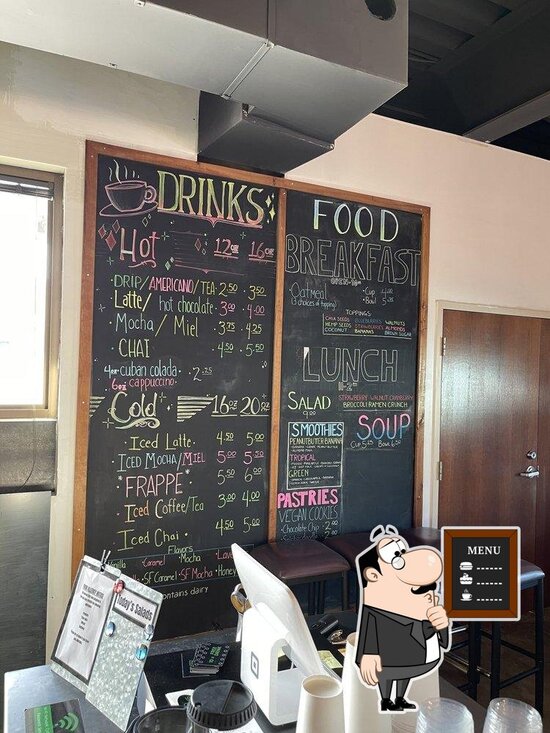 DRINKS
Hot 12oz 16oz
DRIP/AMERICANO/TEA 2.50 3.50
Latte/ hot chocolate 3.00 4.00
Mocha/ Miel 3.75 4.25
CHAI 4.50 5.50
4oz cuban colada 2.75
6oz cappuccino
Cold 16oz 20oz
Iced Latte 4.50 5.00
ICED MOCHA/MIEL 5.00 5.50
FRAPPE 5.50 6.00
Iced Coffee/Tea 3.00 4.00
Iced Chai 4.50 5.00
Flavors
Caramel Mocha
SF Caramel SF Mocha Honey
contains dairy
FOOD
BREAKFAST
Oatmeal
Cup
Bowl
TOPPINGS
CHIA SEEDS BLUEBERRIES WALNUTS
HEMP SEEDS STRAWBERRIES ALMONDS
COCONUT BANANAS BROWN SUGAR
LUNCH
SALAD STRAWBERRY WALNUT CRANBERRY
BROCCOLI RAMEN CRUNCH
SMOOTHIES
PEANUTBUTTER-BANANA
TROPICAL
GREEN
SOUP
PASTRIES
VEGAN COOKIES
Chocolate Chip
Today's Salads
MENU